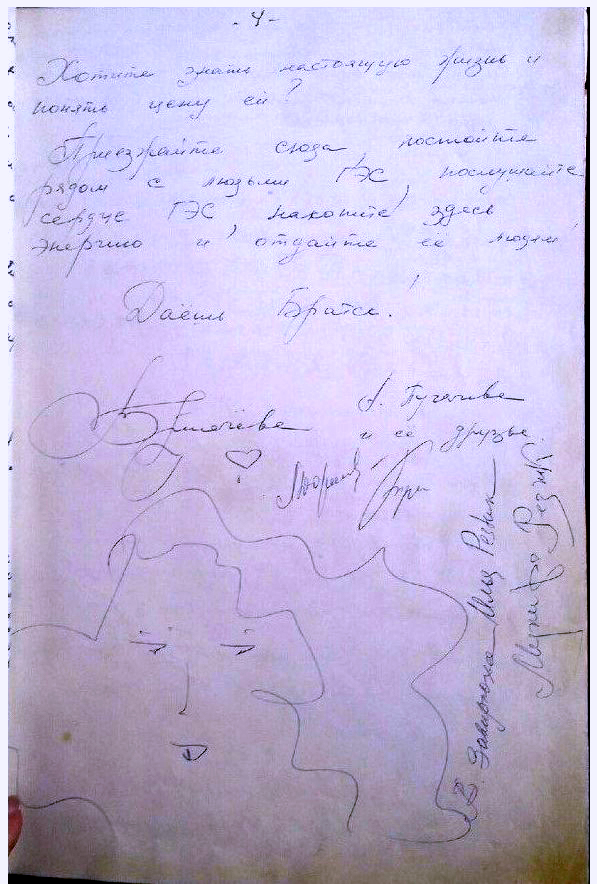 - 4 -
Хотите знать настоящую жизнь и
понять цену ей?
Приезжайте сюда, постойте
рядом с людьми ГЭС, послушайте
сердце ГЭС, накопите здесь
энергию и отдайте её людям!
Даёшь Братск!
А. Пугачёва
и её друзья.
Илья Резник
Резник